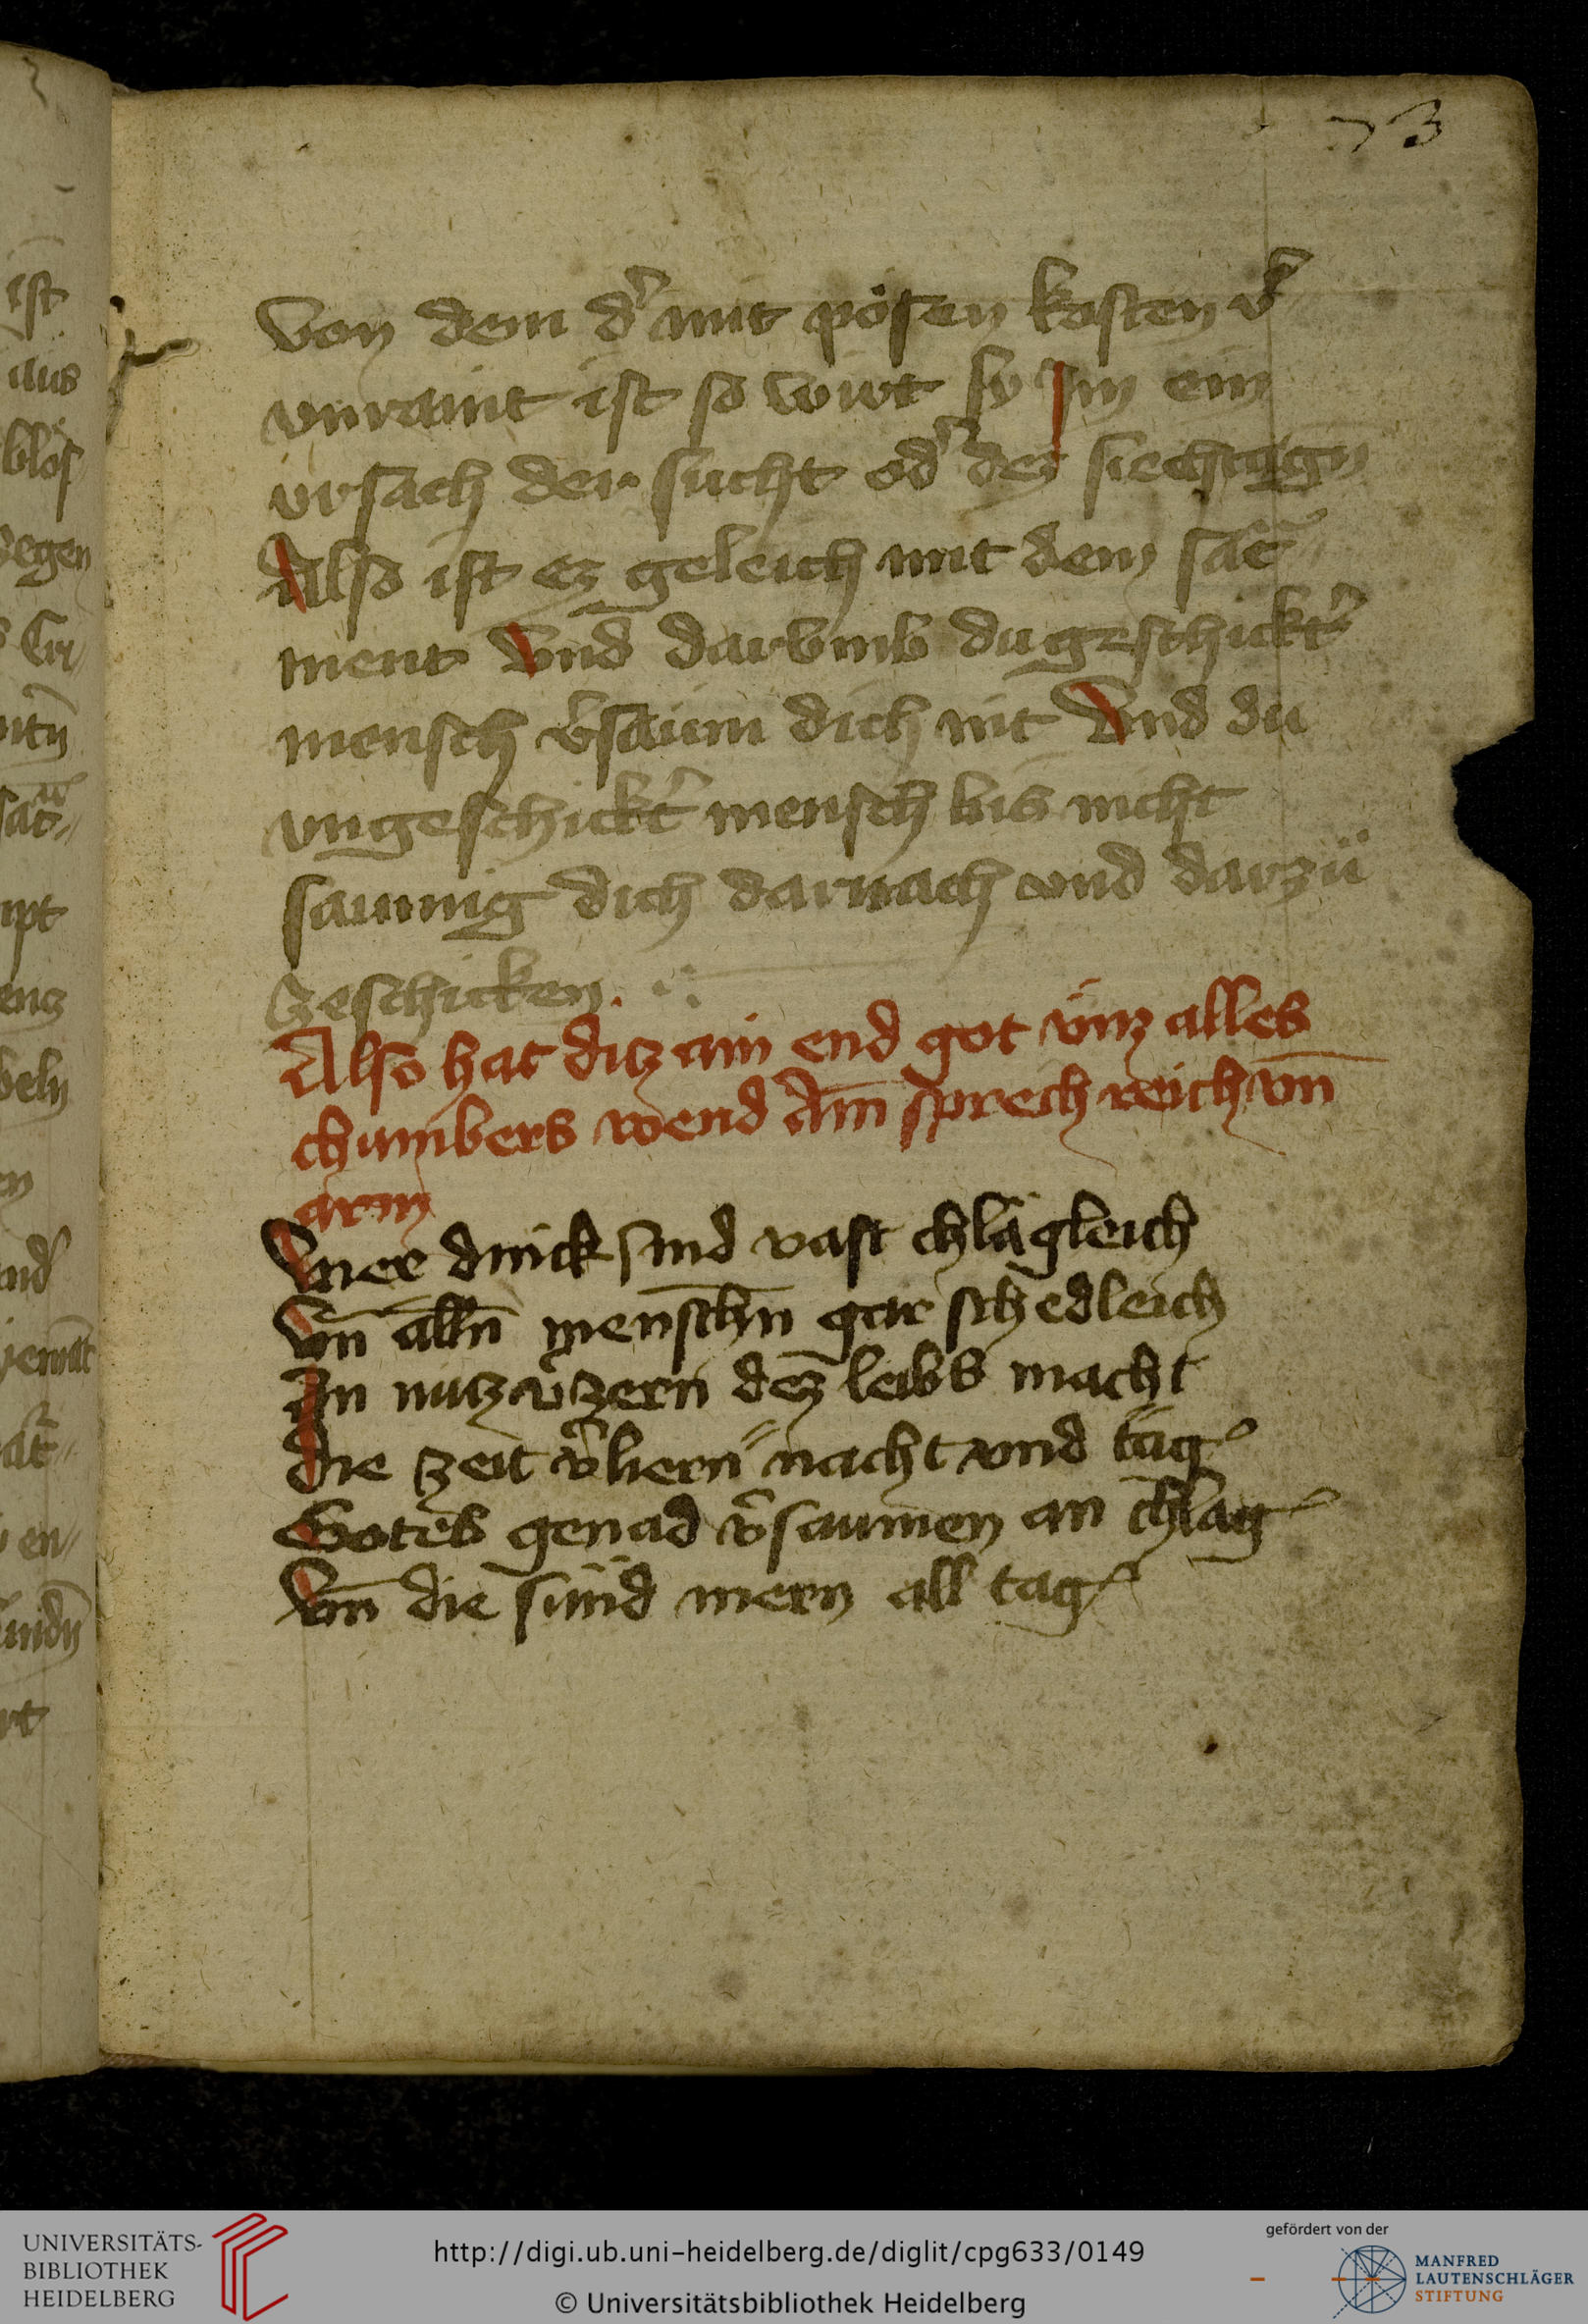 73
Von dem d' mit pösen kosten v'
vnraint ist so wirt sy Im ein
vrsach der sucht od' dez siechtagn
Also ist ez geleich mit dem sac̄
ment Vnd darvmb du geschickt'
mensch v'saum dich nit Vnd du
vngeschickt' mensch bis nicht
saumig dich darnach vnd darzü
zeschicken
Also hat ditz ain end got vnz alles
chumbers wend Am̄ sprech reich vn̄
arm
Vier dinck sind vast chlägleich
Vn̄ alln̄ menschn̄ gar schedleich
In nutz v'zern dez leibs macht
die zeit v'liern nacht vnd tag
Gotes genad v'saumen an chlag
Vn̄ die sünd mern all tag
ist
aus
blös
egen
ipt
beln
en
UNIVERSITÄTS-
BIBLIOTHEK
HEIDELBERG
http://digi.ub.uni-heidelberg.de/diglit/cpg633/0149
© Universitätsbibliothek Heidelberg
gefördert von der
MANFRED
LAUTENSCHLÄGER
STIFTUNG